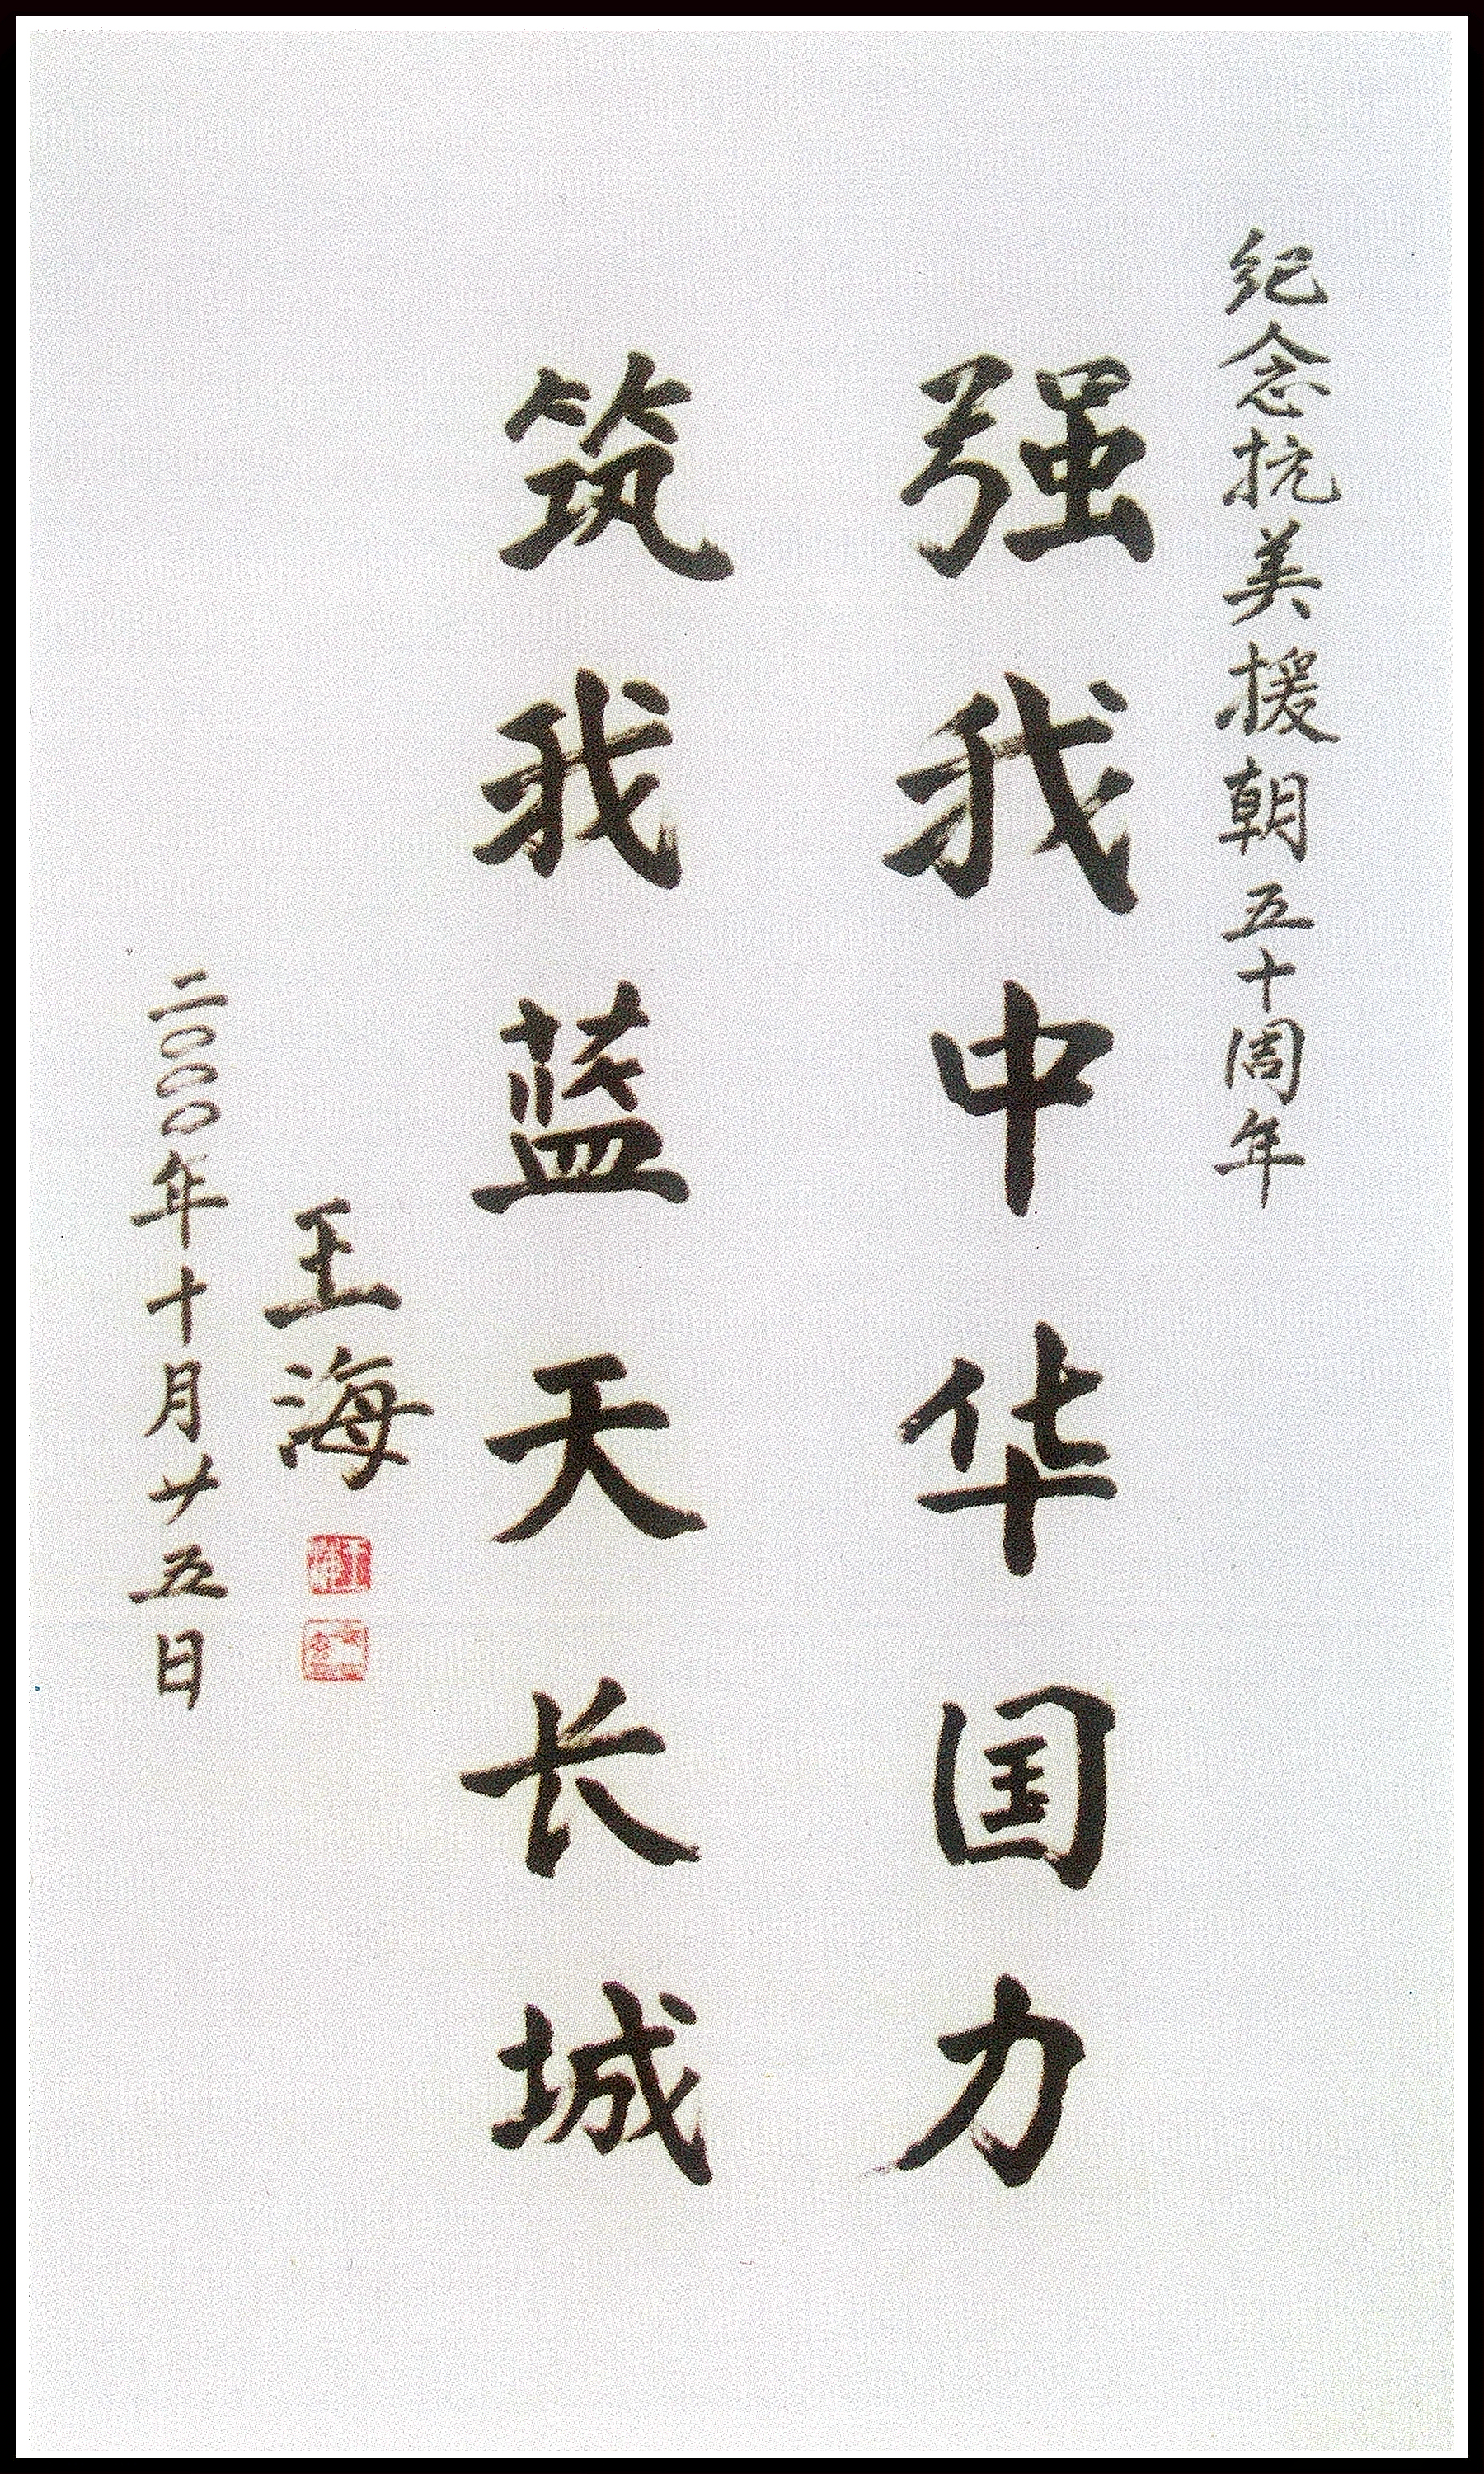 纪念抗美援朝五十周年
强我中华国力
筑我蓝天长城
王海
二〇〇〇年十月廿五日